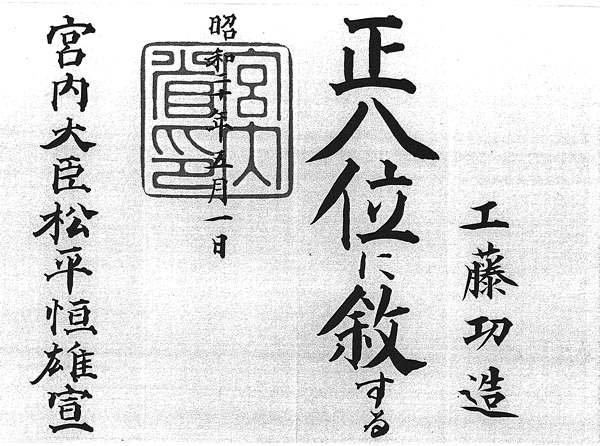 工藤功造
正八位に敘する
昭和二十年五月一日
宮内省印
宮内大臣松平恒雄宣